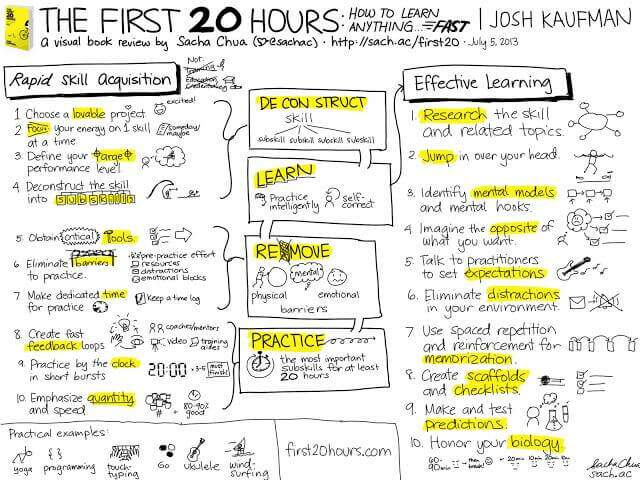 THE FIRST 20 HOURS: HOW TO LEARN ANYTHING... FAST | JOSH KAUFMAN
a visual book review by Sacha Chua (@sachac) · http://sach.ac/first20 · July 5, 2013
Rapid Skill Acquisition
Not:
Training
Education
Credentialing
1 Choose a lovable project
excited!
2 Focus your energy on 1 skill
at a time
someday/
maybe
3 Define your target
performance level
4 Deconstruct the skill
into subskills
5. Obtain critical Tools.
6. Eliminate barriers
to practice.
pre-practice effort
resources
distractions
emotional blocks
7. Make dedicated time
for practice
Keep a time log
8. Create fast
feedback loops
coaches/mentors
video
training
aides
9. Practice by the clock
in short bursts
20:00 × 3-5
must
finish!
10. Emphasize quantity
and speed
80-90%
good
DECONSTRUCT
skill
subskill subskill subskill subskill
LEARN
Practice
intelligently
self-
correct
REMOVE
physical
mental
emotional
barriers
PRACTICE
the most important
subskills for at least
20 hours
Effective Learning
1. Research the skill
and related topics.
2. Jump in over your head.
3. Identify mental models
and mental hooks.
4. Imagine the opposite of
what you want.
5. Talk to practitioners
to set expectations
6. Eliminate distractions
in your environment.
7. Use spaced repetition
and reinforcement for
memorization.
8. Create scaffolds
and checklists.
9. Make and test
predictions.
10. Honor your biology.
60-
90min
then
break!
20min
10m
20m
10m
Practical examples:
yoga
{ }
programming
touch-
typing
Go
Ukulele
wind-
surfing
first20hours.com
Sacha Chua
sach.ac